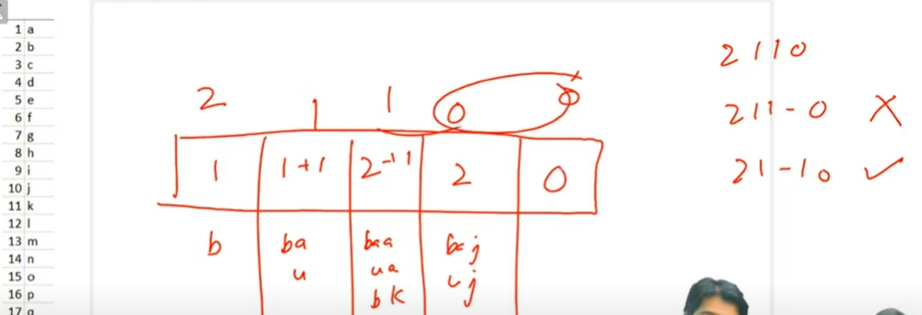 1 a
2 b
3 c
4 d
5 e
6 f
7 g
8 h
9 i
10 j
11 k
12 l
13 m
14 n
15 o
16 p
17 q
2 1 1 0
1 1+1 2-1 1 2 0
b ba baa baj
u ua uj
bk
2110
211-0 X
21-10 ✓